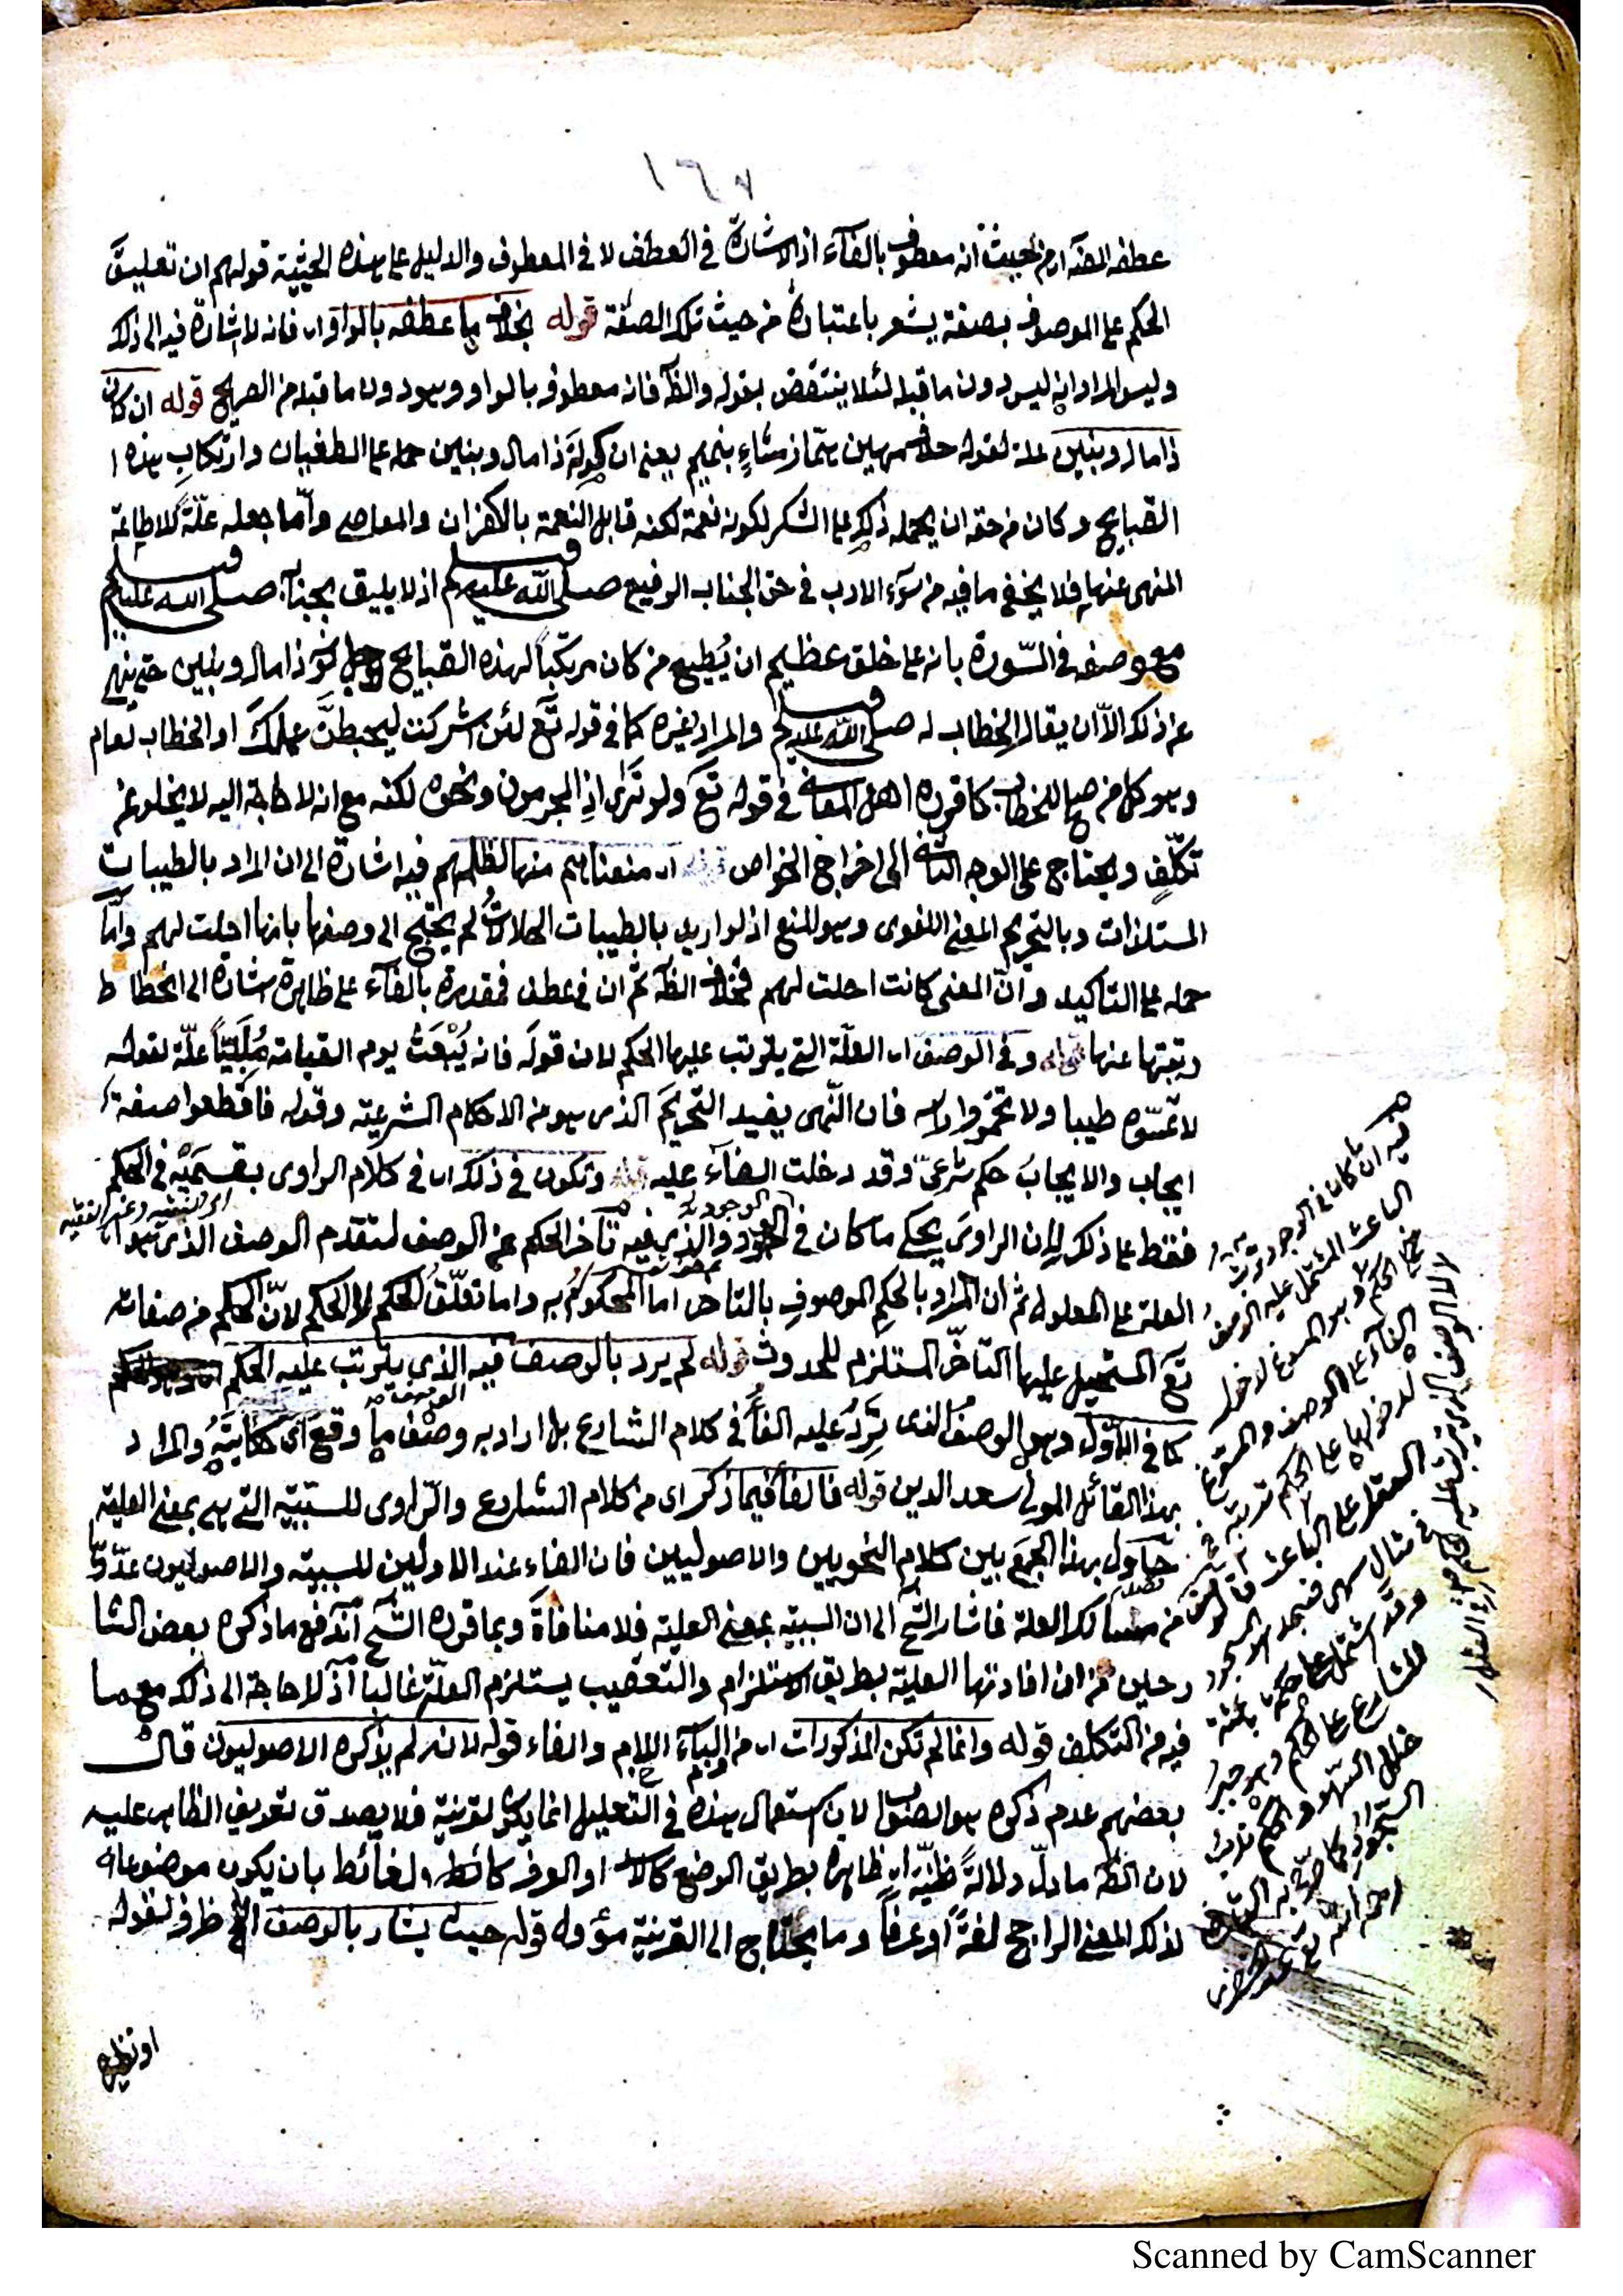 ١٢٧
عطفه الفاء ا من حيث انه معطوف بالفآء اذ الاشارة في العطف لا في المعطوف والدليل على هذه الحيثية قولهم ان تعليق
الحكم على الموصوف بصفة يشعر باعتباره من حيث تلك الصفة قوله بخلاف ما عطفه بالواو اى فانه لا اشارة فيه الى ذلك
وليس المراد انه ليس دون ما قبله لئلا ينتقض بقوله والظ فانه معطوف بالواو وهو دون ما قبله من الصريح قوله ان كان
ذا مال وبنين علة لقوله حلاف مهين هماز مشاءٍ بنميم يعنى ان كونه ذا مال وبنين حمله على الطغيان وارتكاب هذه ا
القبايح وكان من حقه ان يحمله ذلك على الشكر لكونه نعمة لكنه قابل النعمة بالكفران والمعاصى وأما جعله علّةً للاطاعة
المنهى عنها فلا يخفى ما فيه من سوء الادب في حق الجناب الرفيع صلى الله عليه وسلم اذ لا يليق بجنابه صلى الله عليه وسلم
مع وصفه في السّورة بانه على خلق عظيم ان يُطيع من كان مرتكباً لهذه القبايح لاجل كونه ذا مال وبنين حتى ينهى
عن ذلك الاّ ان يقال الخطاب له صلى الله عليه وسلم والمراد غيره كما في قوله تع لئن اشركت ليحبطنّ عملك او الخطاب لعام
وهو كل من صلح للخطاب كما قرره اهل المعانى في قوله تع ولو ترى اذِ المجرمون ونحوه لكنه مع انه لا حاجة اليه لا يخلو عن
تكلّفٍ ويحتاج على الوجه الثانى الى اخراج الخواص قوله اى منعناهم منها لظلمهم فيه اشارة الى ان المراد بالطيبات
المستلذات وبالتحريم المعنى اللغوى وهو المنع اذ لو اريد بالطيبات الحلالات لم يحتج الى وصفها بانها احلت لهم وأما
حمله على التاكيد وانّ المعنى كانت احلت لهم فخلاف الظ ثم ان في عطف فمقدرة بالفآء على ظاهرة اشارة الى انحطاط
رتبتها عنها قوله وفى الوصف اى العلّة التى يترتب عليها الحكم لان قوله فانه يُبْعَثُ يوم القيامة مُلَبّيًا علّة لقوله
لا تمسّوه طيبا ولا تخمروا راسه فان النّهى يفيد التحريم الذى هو من الاحكام الشرعيّة وقوله فاقطعوا صيغة
ايجاب والايجابُ حكم شرعىّ وقد دخلت الفآء عليه قوله وتكون في ذلك اى في كلام الراوى بقسمَيْه في الحكم
اى الفقيه وغير الفقيه
فقط على ذلك لان الراوى يحكى ما كان في الوجود والذى فيه تأخر الحكم عن الوصف لتقدم الوصف الذى هو ا
العلة على المعلول ثم ان المراد بالحكم الموصوفِ بالتاخر اما المحكوم به واما تعلّقُ الحكم لا الحكم لانّ الحكم من صفات
تع المستحيل عليها التأخّر المستلزم للحدوث قوله لم يرد بالوصف فيه الذى يترتب عليه الحكم
كما في الاوّل وهو الوصف الذى تَرِدُ عليه الفاءُ في كلام الشارع بل اراد به وصف ما وقع اى حكايته والمراد
بهذا القائل المولى سعد الدين قوله فالفاء فيما ذكر اى من كلام الشارع والرّاوى للسببيّة التى هى بمعنى العلية
حاول بهذا الجمع بين كلام النحويين والاصوليين فان الفاء عند الاولين للسببيّة والاصوليون عدّوا
من مسالك العلة فاشار الشّ الى ان السببيّة بمعنى العليّة فلا منافاة وبما قرره الشّ اندفع ما ذكره بعض الشا
رحين من ان افادتها العلية بطريق الاستلزام والتعقيب يستلزم العلّة غالباً اذ لا حاجة الى ذلك مع ما
فيه من التكلف قوله وانما لم تكن المذكورات اى من الباء واللام والفاء قوله لانه لم يذكره الاصوليون قال
بعضهم عدم ذكره هو الصواب لان استعمال هذه في التعليل انما يكون لقرينة فلا يصدق تعريف الظاهر عليه
لان الظ ما دلّ دلالةً ظنّيّة اى ظاهره بطريق الوضع كالاسد او العرف كالغائط بان يكون موضوعا له
لذلك المعنى الراجح لغةً او عرفاً وما يحتاج الى القرينة مؤول قوله حيث يشار بالوصف الخ ظرف لقوله
او نظيره
فيه ان ما كان في الوجود ترتب
الباعث المشتمل عليه الوصف
الفآء على الوصف والمسوغ
لدخولها على الحكم ترتبه في
وقد اشتمل على حكمة باعثة
للشارع على الحكم وهو جبر
خلل السهو
Scanned by CamScanner